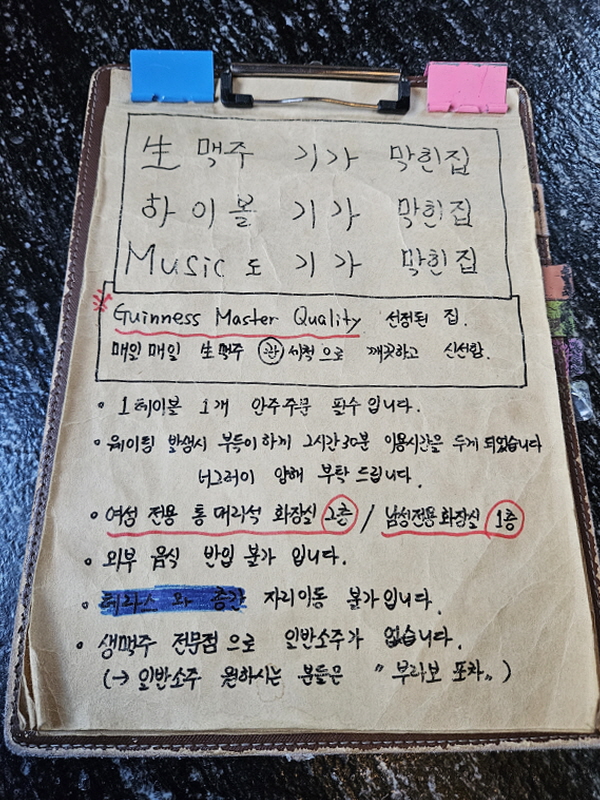 生 맥주 기가 막힌집
하이볼 기가 막힌집
Music 도 기가 막힌집
Guinness Master Quality 선정된 집.
매일 매일 生맥주 관 세척으로 깨끗하고 신선함.
• 1테이블 1개 안주주문 필수입니다.
• 웨이팅 발생시 부득이하게 2시간30분 이용시간을 두게 되었습니다
너그러이 양해 부탁 드립니다.
• 여성 전용 통 대리석 화장실 2층 / 남성전용화장실 1층
• 외부 음식 반입 불가 입니다.
• 테라스 와 층간 자리이동 불가입니다.
• 생맥주 전문점으로 일반소주가 없습니다.
(→ 일반소주 원하시는 분들은 " 부라보 포차„ )